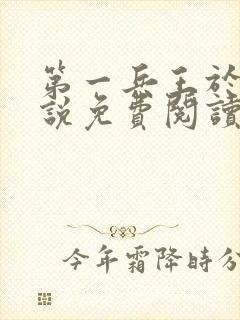 第一兵王於
說免費閱讀
今年霜降時分